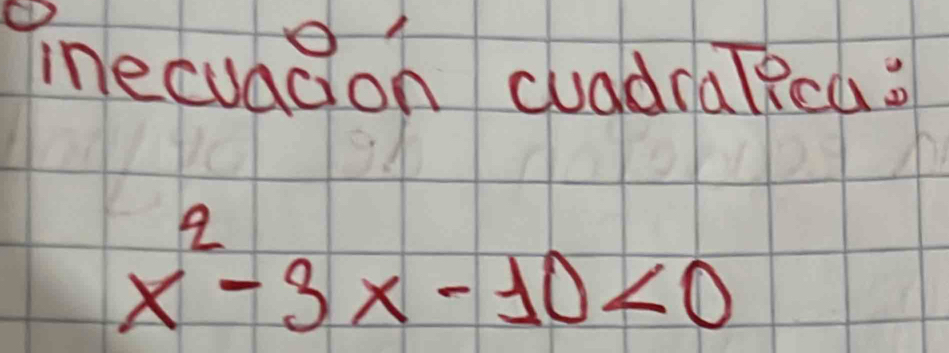 inecuación cuadratica:
x² - 3x - 10 < 0